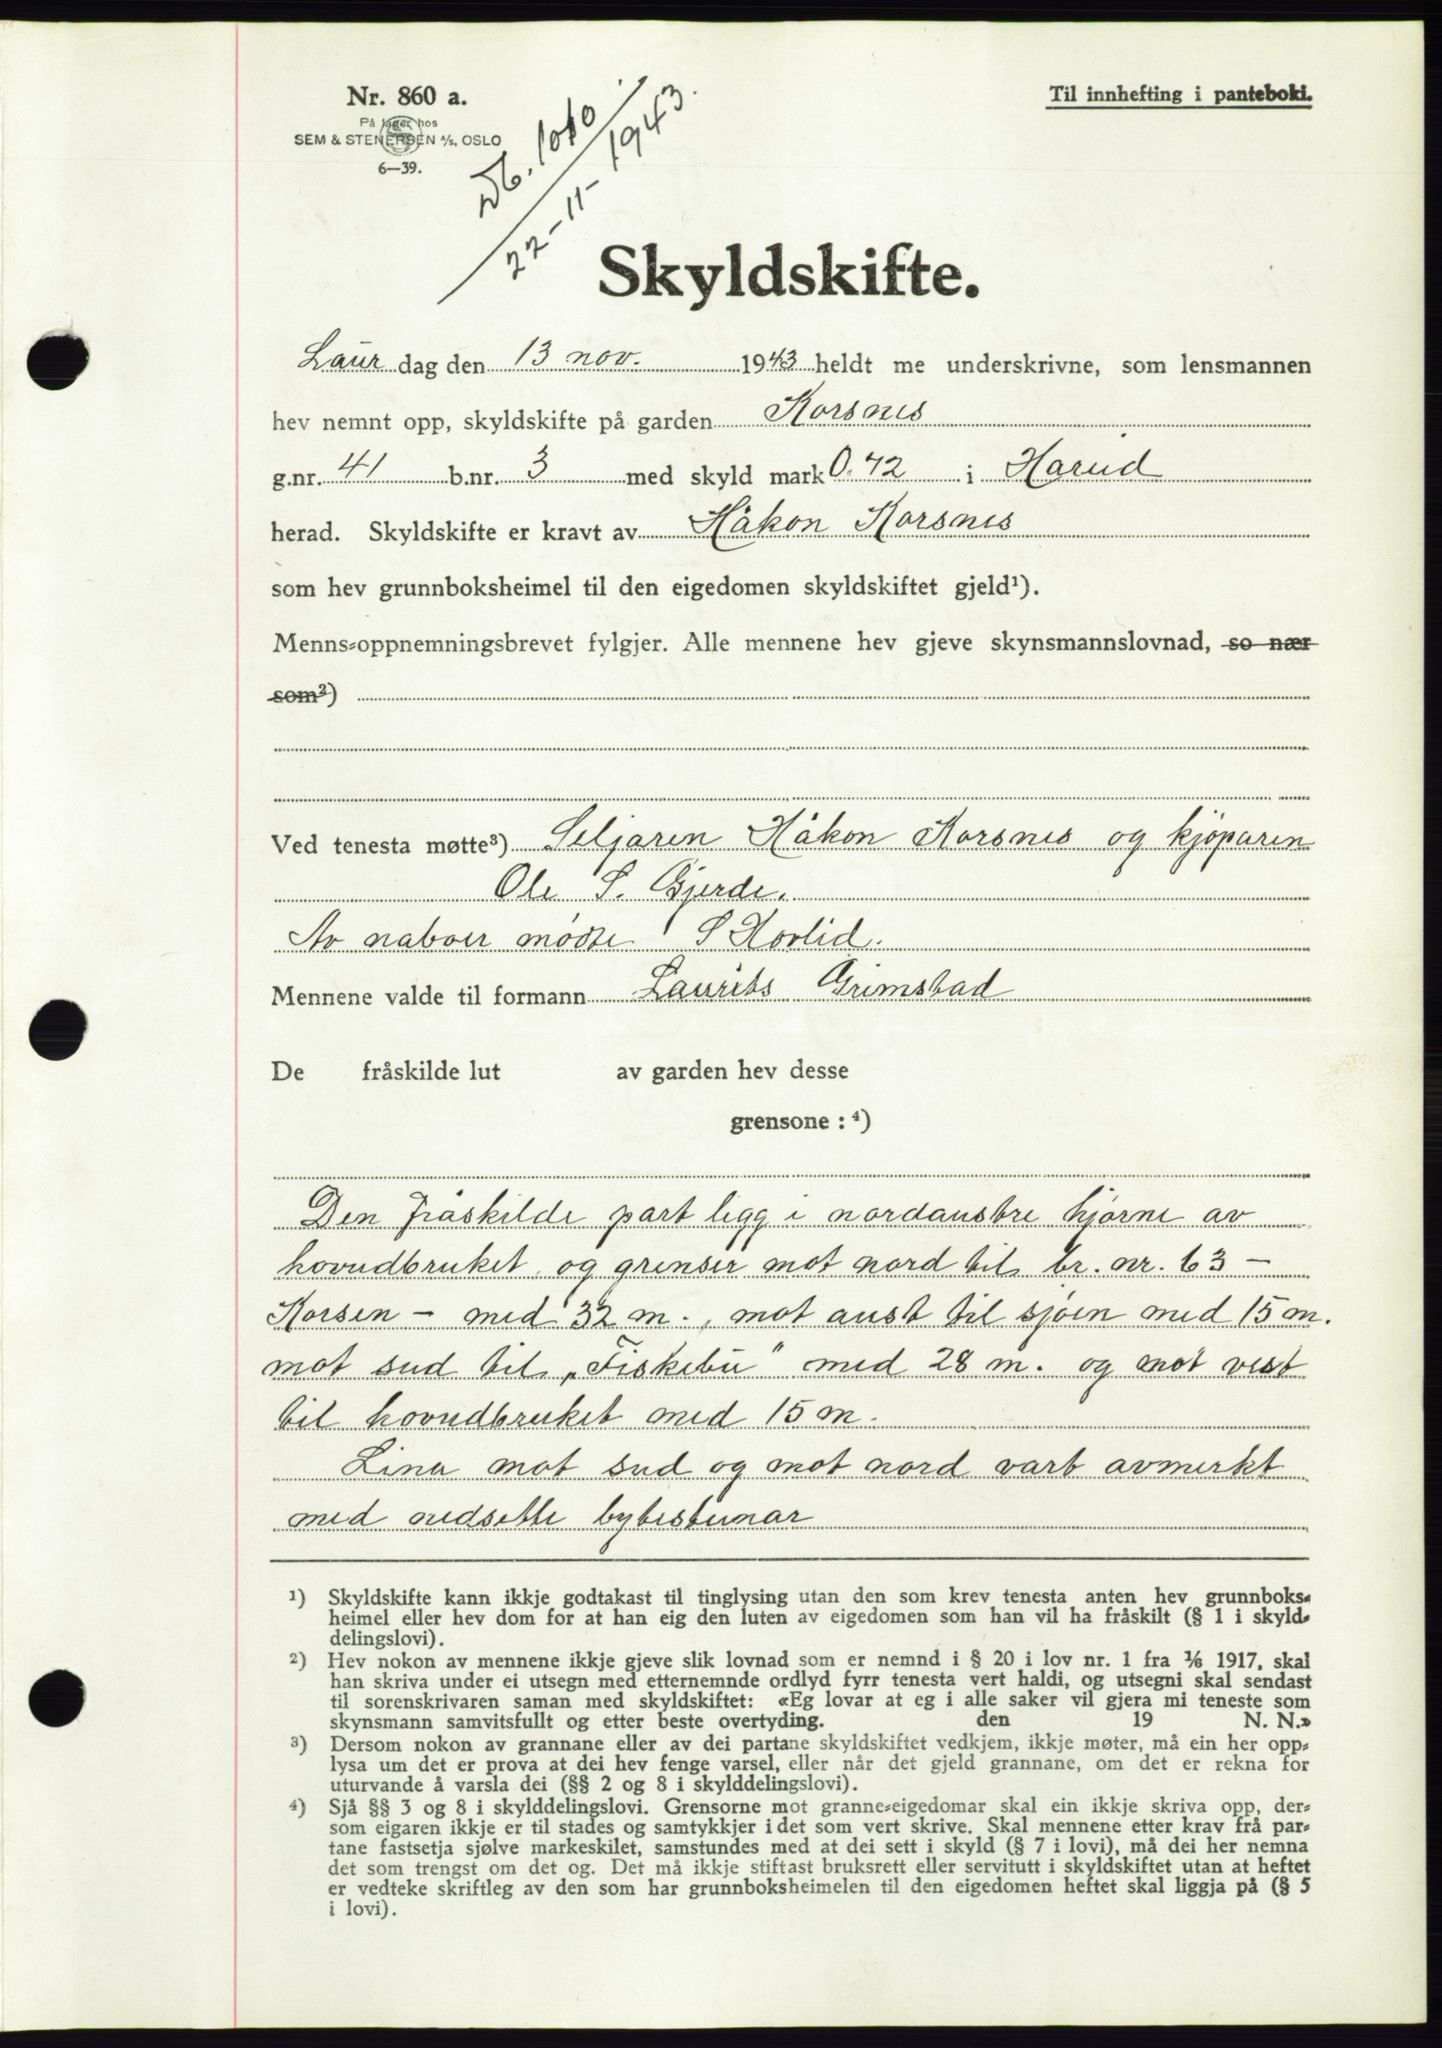 Nr. 860 a.
På lager hos
SEM & STENERSEN A/S, OSLO
6—39.
Db. 1010
22-11-1943.
Til innhefting i panteboki.
Skyldskifte.
Laur dag den 13 nov. 1943 heldt me underskrivne, som lensmannen
hev nemnt opp, skyldskifte på garden Korsnes
g.nr. 41 b.nr. 3 med skyld mark 0.42 i Hareid
herad. Skyldskifte er kravt av Håkon Korsnes
som hev grunnboksheimel til den eigedomen skyldskiftet gjeld¹).
Menns-oppnemningsbrevet fylgjer. Alle mennene hev gjeve skynsmannslovnad, so nær
som²)
Ved tenesta møtte³) Seljaren Håkon Korsnes og kjöparen
Ole S. Gjerde.
Av naboer mödte S Hovlid.
Mennene valde til formann Laurits Grimstad
De fråskilde lut av garden hev desse
grensone : ⁴)
Den fråskilde part ligg i nordaustre hjörne av
hovudbruket og grenser mot nord til br. nr. 63 –
Korsen – med 32 m., mot aust til sjöen med 15 m.
mot sud til „Fiskebu" med 28 m. og mot vest
til hovudbruket med 15 m.
Lina mot sud og mot nord vart avmerkt
med nedsette bytesteinar
¹) Skyldskifte kann ikkje godtakast til tinglysing utan den som krev tenesta anten hev grunnboks-
heimel eller hev dom for at han eig den luten av eigedomen som han vil ha fråskilt (§ 1 i skyld-
delingslovi).
²) Hev nokon av mennene ikkje gjeve slik lovnad som er nemnd i § 20 i lov nr. 1 fra 1/6 1917, skal
han skriva under ei utsegn med etternemnde ordlyd fyrr tenesta vert haldi, og utsegni skal sendast
til sorenskrivaren saman med skyldskiftet: «Eg lovar at eg i alle saker vil gjera mi teneste som
skynsmann samvitsfullt og etter beste overtyding. den 19 N. N.»
³) Dersom nokon av grannane eller av dei partane skyldskiftet vedkjem, ikkje møter, må ein her opp-
lysa um det er prova at dei hev fenge varsel, eller når det gjeld grannane, om det er rekna for
uturvande å varsla dei (§§ 2 og 8 i skylddelingslovi).
⁴) Sjå §§ 3 og 8 i skylddelingslovi. Grensorne mot granne-eigedomar skal ein ikkje skriva opp, der-
som eigaren ikkje er til stades og samtykkjer i det som vert skrive. Skal mennene etter krav frå par-
tane fastsetja sjølve markeskilet, samstundes med at dei sett i skyld (§ 7 i lovi), må dei her nemna
det som trengst om det og. Det må ikkje stiftast bruksrett eller servitutt i skyldskiftet utan at heftet
er vedteke skriftleg av den som har grunnboksheimelen til den eigedomen heftet skal liggja på (§ 5
i lovi).